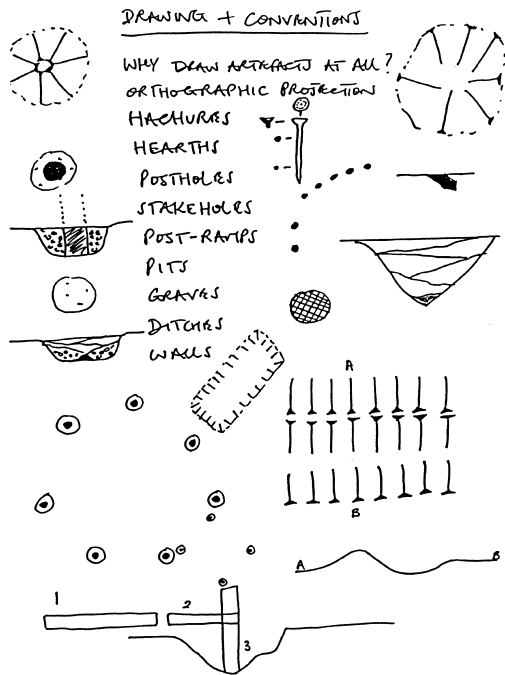 DRAWING + CONVENTIONS
WHY DRAW ARTEFACTS AT ALL?
ORTHOGRAPHIC PROJECTION
HACHURES
HEARTHS
POSTHOLES
STAKEHOLES
POST-RAMPS
PITS
GRAVES
DITCHES
WALLS
A
B
A B
1
2
3